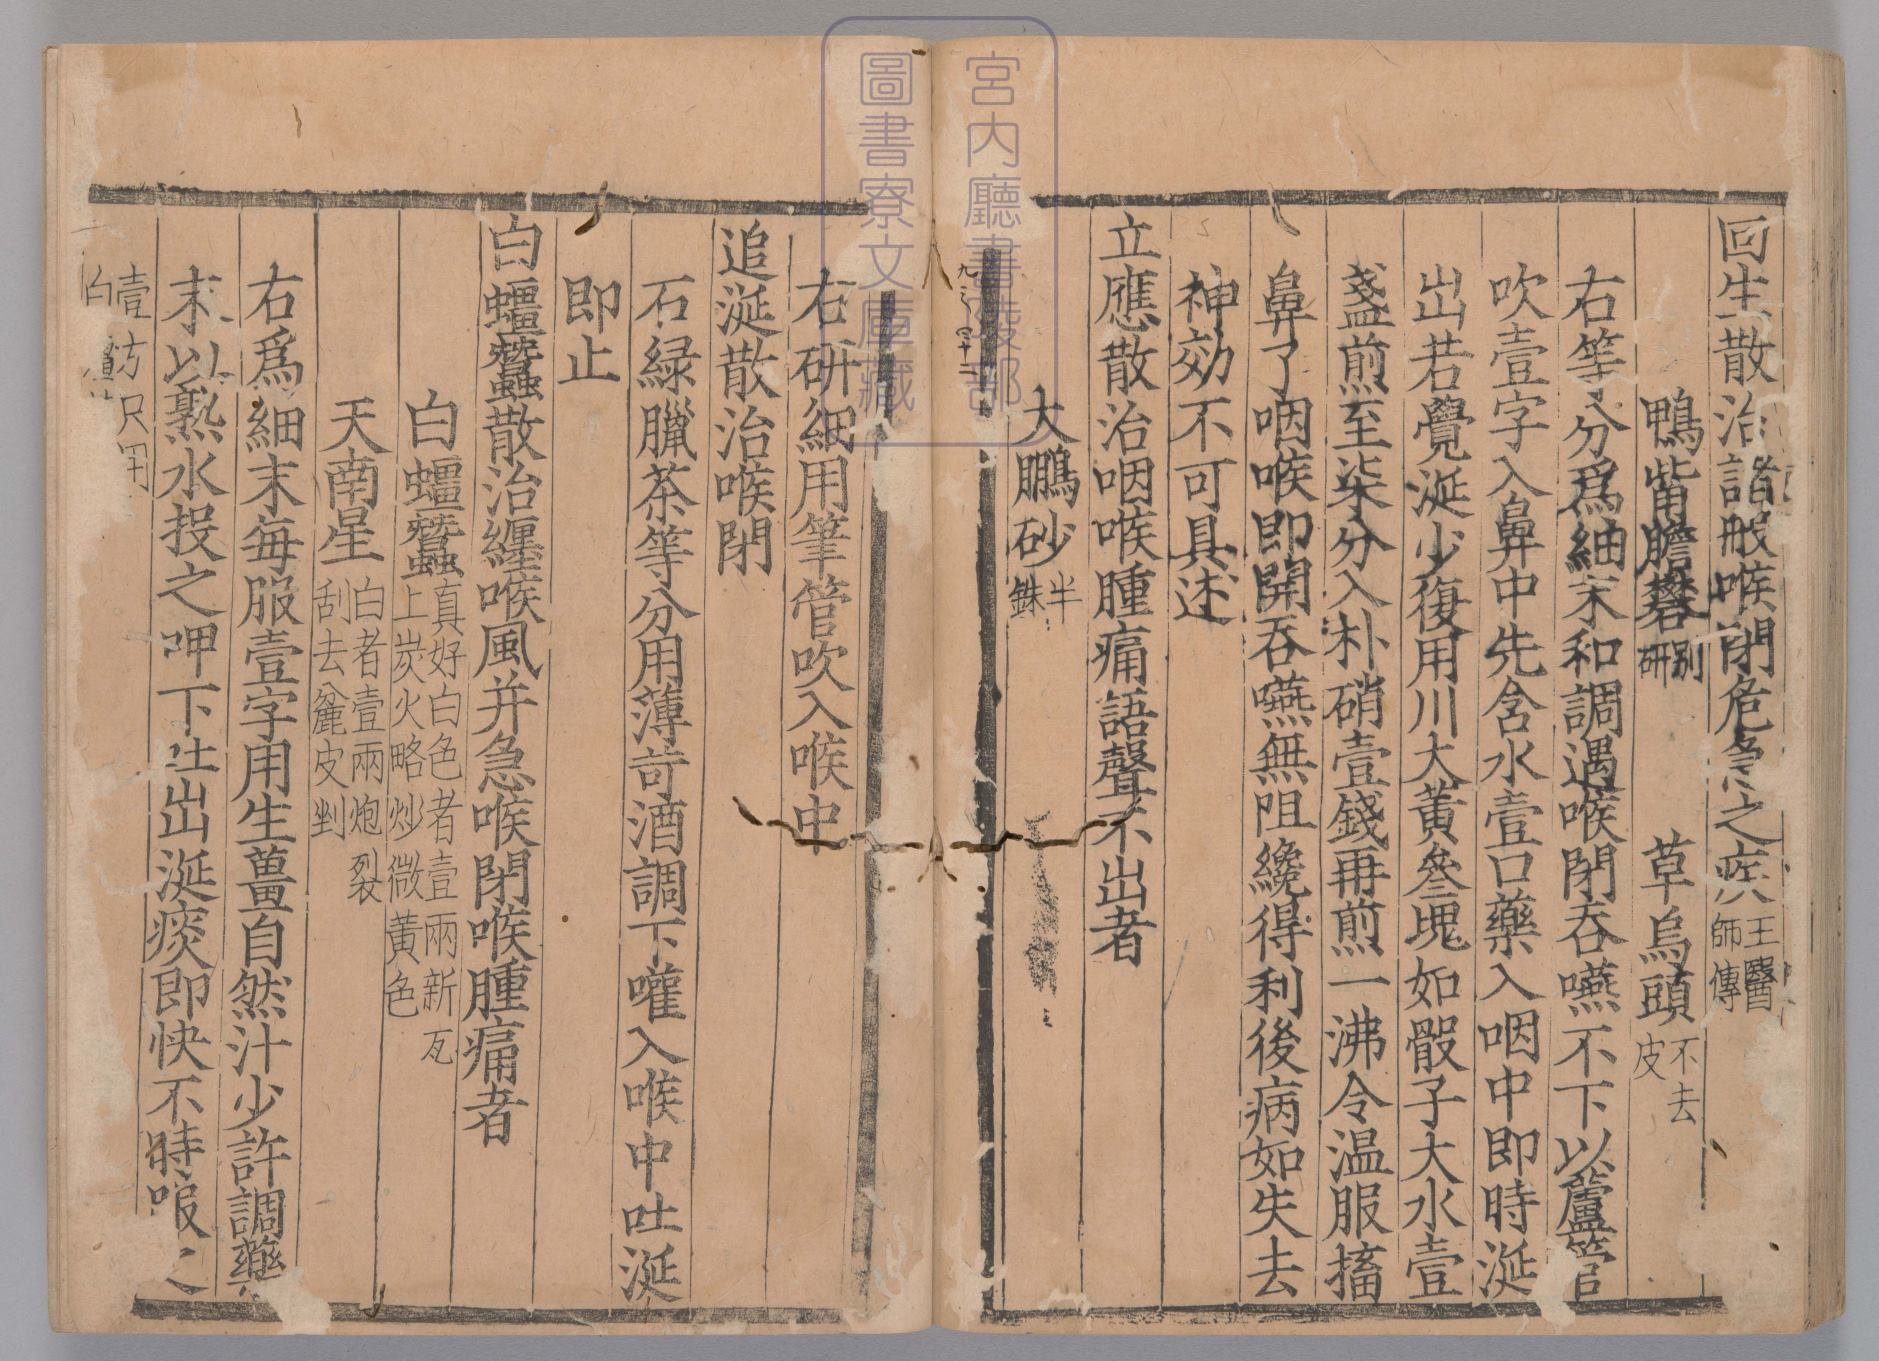 回生散治諸般喉閉危急之疾王醫師傳
鴨觜膽礬別研 草烏頭不去皮
右等分爲細末和調遇喉閉吞嚥不下以蘆管
吹壹字入鼻中先含水壹口藥入咽中即時涎
出若覺涎少復用川大黃叄塊如骰子大水壹
盞煎至柒分入朴硝壹錢再煎一沸令温服搐
鼻了咽喉即開吞嚥無阻纔得利後病如失去
神効不可具述
立應散治咽喉腫痛語聲不出者
大鵬砂半銖
右研細用筆管吹入喉中
追涎散治喉閉
石緑臘茶等分用薄苛酒調下嚾入喉中吐涎
即止
白蠮蠶散治纏喉風并急喉閉喉腫痛者
白蠮蠶真好白色者壹兩新瓦上炭火略炒微黃色
天南星白者壹兩炮裂刮去麄皮剉
右爲細末每服壹字用生薑自然汁少許調藥
末以熟水投之呷下吐出涎痰即快不時服之
壹方只用白
宮内廳書陵部
圖書寮文庫藏